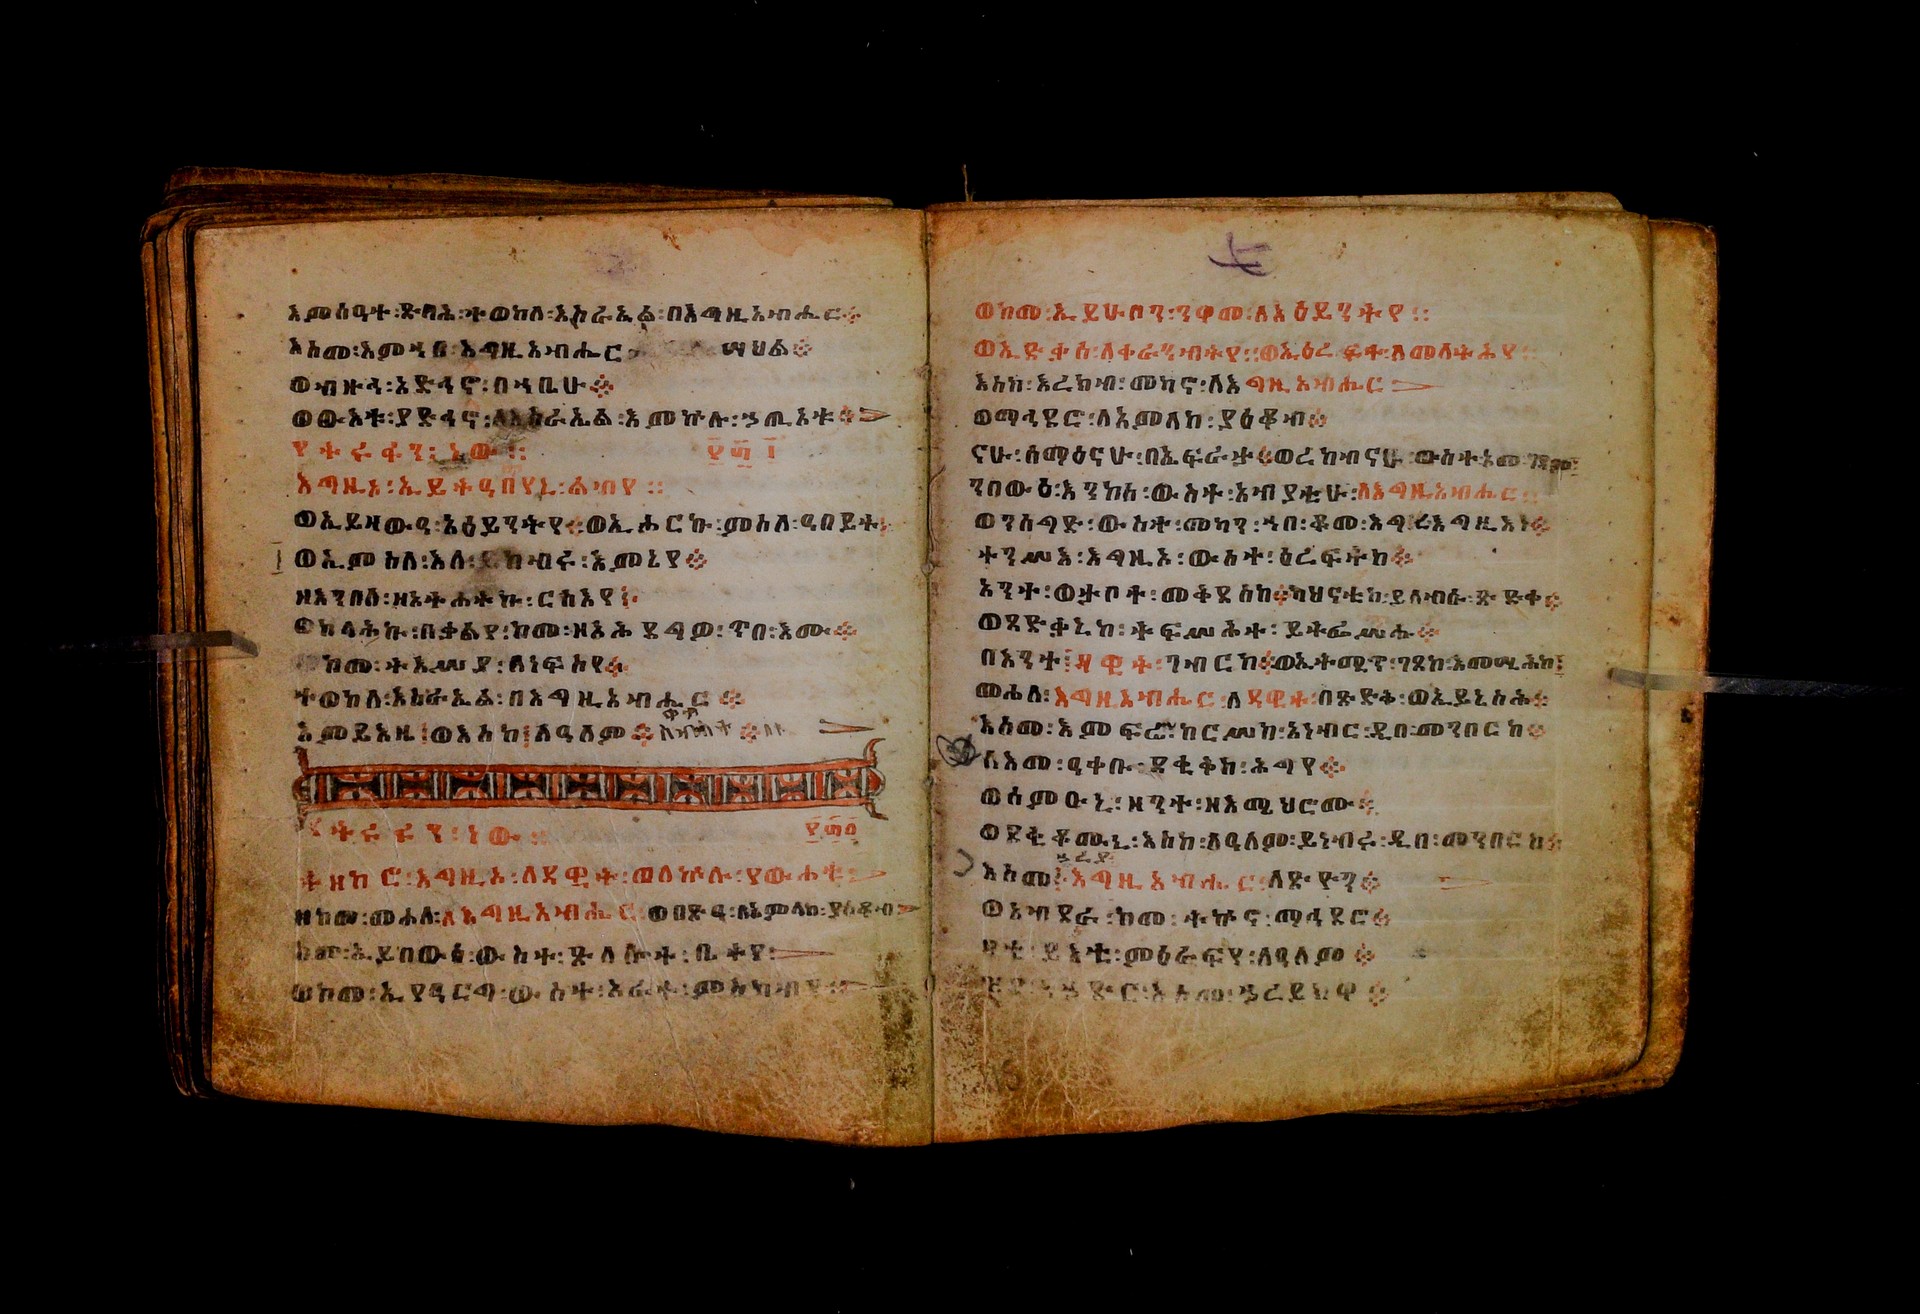 እምሰዓተ፡ጽባሕ፡ተወከለ፡እስራኤል፡በእግዚአብሔር
እስመ፡እምኀበ፡እግዚአብሔር ሣህል
ወብዙኅ፡አድኅኖ፡በኀቤሁ
ወውእቱ፡ያድኅኖ፡ለእስራኤል፡እምኵሉ፡ኃጢአቱ
፻፴
እግዚኦ፡ኢይትዓበየኒ፡ልብየ
ወኢይዛውዓ፡አዕይንትየ፡ወኢሖርኩ፡ምስለ፡ዓበይት
ወኢምስለ፡እለ፡ይከብሩ፡እምኔየ
ዘእንበለ፡ዘአትሐትኩ፡ርእስየ
ወከላሕኩ፡በቃልየ፡ከመ፡ዘአሕፀዋዎ፡ጥበ፡እሙ
ከመ፡ተአሥያ፡ለነፍስየ
ተወከለ፡እስራኤል፡በእግዚአብሔር
እምይእዜ፡ወእስከ፡ለዓለም
፻፴፩
ተዘከር፡እግዚኦ፡ለዳዊት፡ወለኵሉ፡የውሀቱ
ዘከመ፡መሐለ፡ለእግዚአብሔር፡ወበፅዓ፡ለአምላከ፡ያዕቆብ
ከመ፡ኢይበውዕ፡ውስተ፡ጽላሎተ፡ቤትየ
ወከመ፡ኢየዓርግ፡ውስተ፡አራተ፡ምስካብየ
ወከመ፡ኢይሁቦን፡ንዋመ፡ለአዕይንትየ
ወኢድቃሰ፡ለቀራንብትየ፡ወኢዕረፍተ፡ለመላትሕየ
እስከ፡እረክብ፡መካኖ፡ለእግዚአብሔር
ወማኅደሮ፡ለአምላከ፡ያዕቆብ
ናሁ፡ሰማዕናሁ፡በኤፍራታ፡ወረከብናሁ፡ውስተ፡
ንበውዕ፡እንከሰ፡ውስተ፡አብያቲሁ፡ለእግዚአብሔር
ወንሰግድ፡ውስተ፡መካን፡ኀበ፡ቆመ፡እግረ፡እግዚእነ
ተንሥእ፡እግዚኦ፡ውስተ፡ዕረፍትከ
አንተ፡ወታቦተ፡መቅደስከ፡ካህናቲከ፡ይለብሱ፡ጽድቀ
ወጻድቃኒከ፡ትፍሥሕተ፡ይትፌሥሑ
በእንተ፡ዳዊት፡ገብርከ፡ወኢትሚጥ፡ገጸከ፡እመሢሕከ
መሐለ፡እግዚአብሔር፡ለዳዊት፡በጽድቅ፡ወኢይኔስሕ
እስመ፡እምፍሬ፡ከርሥከ፡አነብር፡ዲበ፡መንበርከ
ለእመ፡ዓቀቡ፡ደቂቅከ፡ሕግየ
ወስምዑኒ፡ዘንተ፡ዘእሜህሮሙ
ወደቂቆሙኒ፡እስከ፡ለዓለም፡ይነብሩ፡ዲበ፡መንበርከ
እስመ፡እግዚአብሔር፡ለጽዮን
ወአብደራ፡ከመ፡ትኵኖ፡ማኅደሮ
ዛቲ፡ይእቲ፡ምዕራፍየ፡ለዓለም
ዝየ፡አኀድር፡እስመ፡ኃረይክዋ